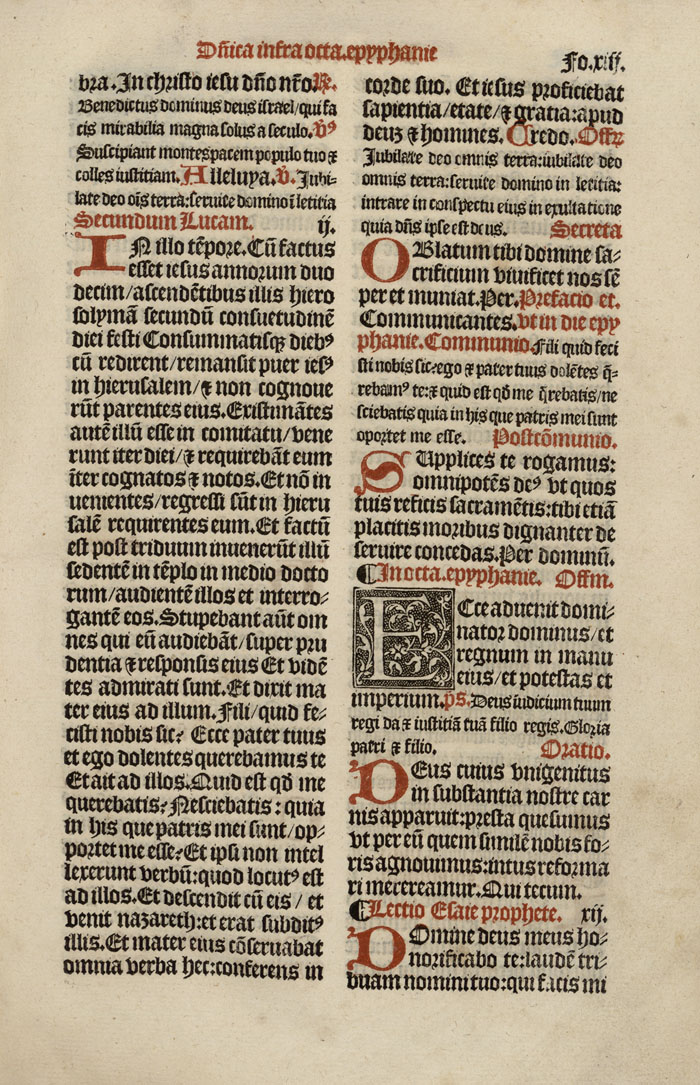 Dñica infra octa.epyphanie
Fo.xiij.
bra.In christo iesu dño nr̃o.℞.
Benedictus dominus deus israel/qui fa
cis mirabilia magna solus a seculo.℣ꝰ
Suscipiant montes pacem populo tuo ⁊
colles iustitiam.Alleluya.℣.Jubi⸗
late deo oīs terra:seruite domino ī letitia
Secundum Lucam. ij.
IN illo tẽpore.Cũ factus
esset iesus annorum duo
decim/ascendẽtibus illis hiero
solymã secundũ consuetudinẽ
diei festi Consummatisqꝫ diebꝰ
cũ redirent/remansit puer iesꝰ
in hierusalem/⁊ non cognoue
rũt parentes eius.Existimãtes
autẽ illũ esse in comitatu/vene
runt iter diei/⁊ requirebãt eum
īter cognatos ⁊ notos.Et nõ in
uenientes/regressi sũt in hieru
salẽ requirentes eum.Et factũ
est post triduum inuenerũt illũ
sedentẽ in tẽplo in medio docto
rum/audientẽ illos et interro⸗
gantẽ eos.Stupebant aũt om
nes qui eũ audiebãt/super pru
dentia ⁊ responsis eius Et vidẽ
tes admirati sunt.Et dixit ma
ter eius ad illum.Fili/quid fe⸗
cisti nobis sic? Ecce pater tuus
et ego dolentes querebamus te
Et ait ad illos.Quid est qđ me
querebatis?Nesciebatis:quia
in his que patris mei sunt/op⸗
portet me esse?Et ipsi non intel
lexerunt verbũ:quod locutꝰ est
ad illos.Et descendit cũ eis / et
venit nazareth:et erat subditꝰ
illis.Et mater eius cõseruabat
omnia verba hec:conferens in
corde suo. Et iesus proficiebat
sapientia/etate/⁊ gratia:apud
deuꝫ ⁊ homines. Credo. Offꝝ
Jubilate deo omnis terra:iubilate deo
omnis terra:seruite domino in letitia:
intrare in conspectu eius in exultatione
quia dñs ipse est deus. Secreta
OBlatum tibi domine sa⸗
crificium viuificet nos sẽ
per et muniat.Per.Prefacio et.
Communicantes.vt in die epy
phanie.Communio.Fili quid feci
sti nobis sic?ego ⁊ pater tuus dolẽtes q̃⸗
rebamꝰ te:⁊ quid est qđ me q̃rebatis/ne
sciebatis quia in his que patris mei sunt
oportet me esse. Postcõmunio.
SUpplices te rogamus:
omnipotẽs deꝰ vt quos
tuis reficis sacramẽtis:tibi etiã
placitis moribus dignanter de
seruire concedas.Per dominũ.
¶In octa.epyphanie. Offm.
Ecce aduenit domi⸗
nator dominus/et
regnum in manu
eius/et potestas et
imperium.ps.Deus iudicium tuum
regi da ⁊ iustitiã tuã filio regis.Gloria
patri ⁊ filio. Oratio.
DEus cuius vnigenitus
in substantia nostre car
nis apparuit:presta quesumus
vt per eũ quem similẽ nobis fo⸗
ris agnouimus:intus reforma
ri mereamur.Qui tecum.
¶Lectio Esaie prophete. xij.
DOmine deus meus ho⸗
norificabo te:laudẽ tri⸗
buam nomini tuo:qui facis mi